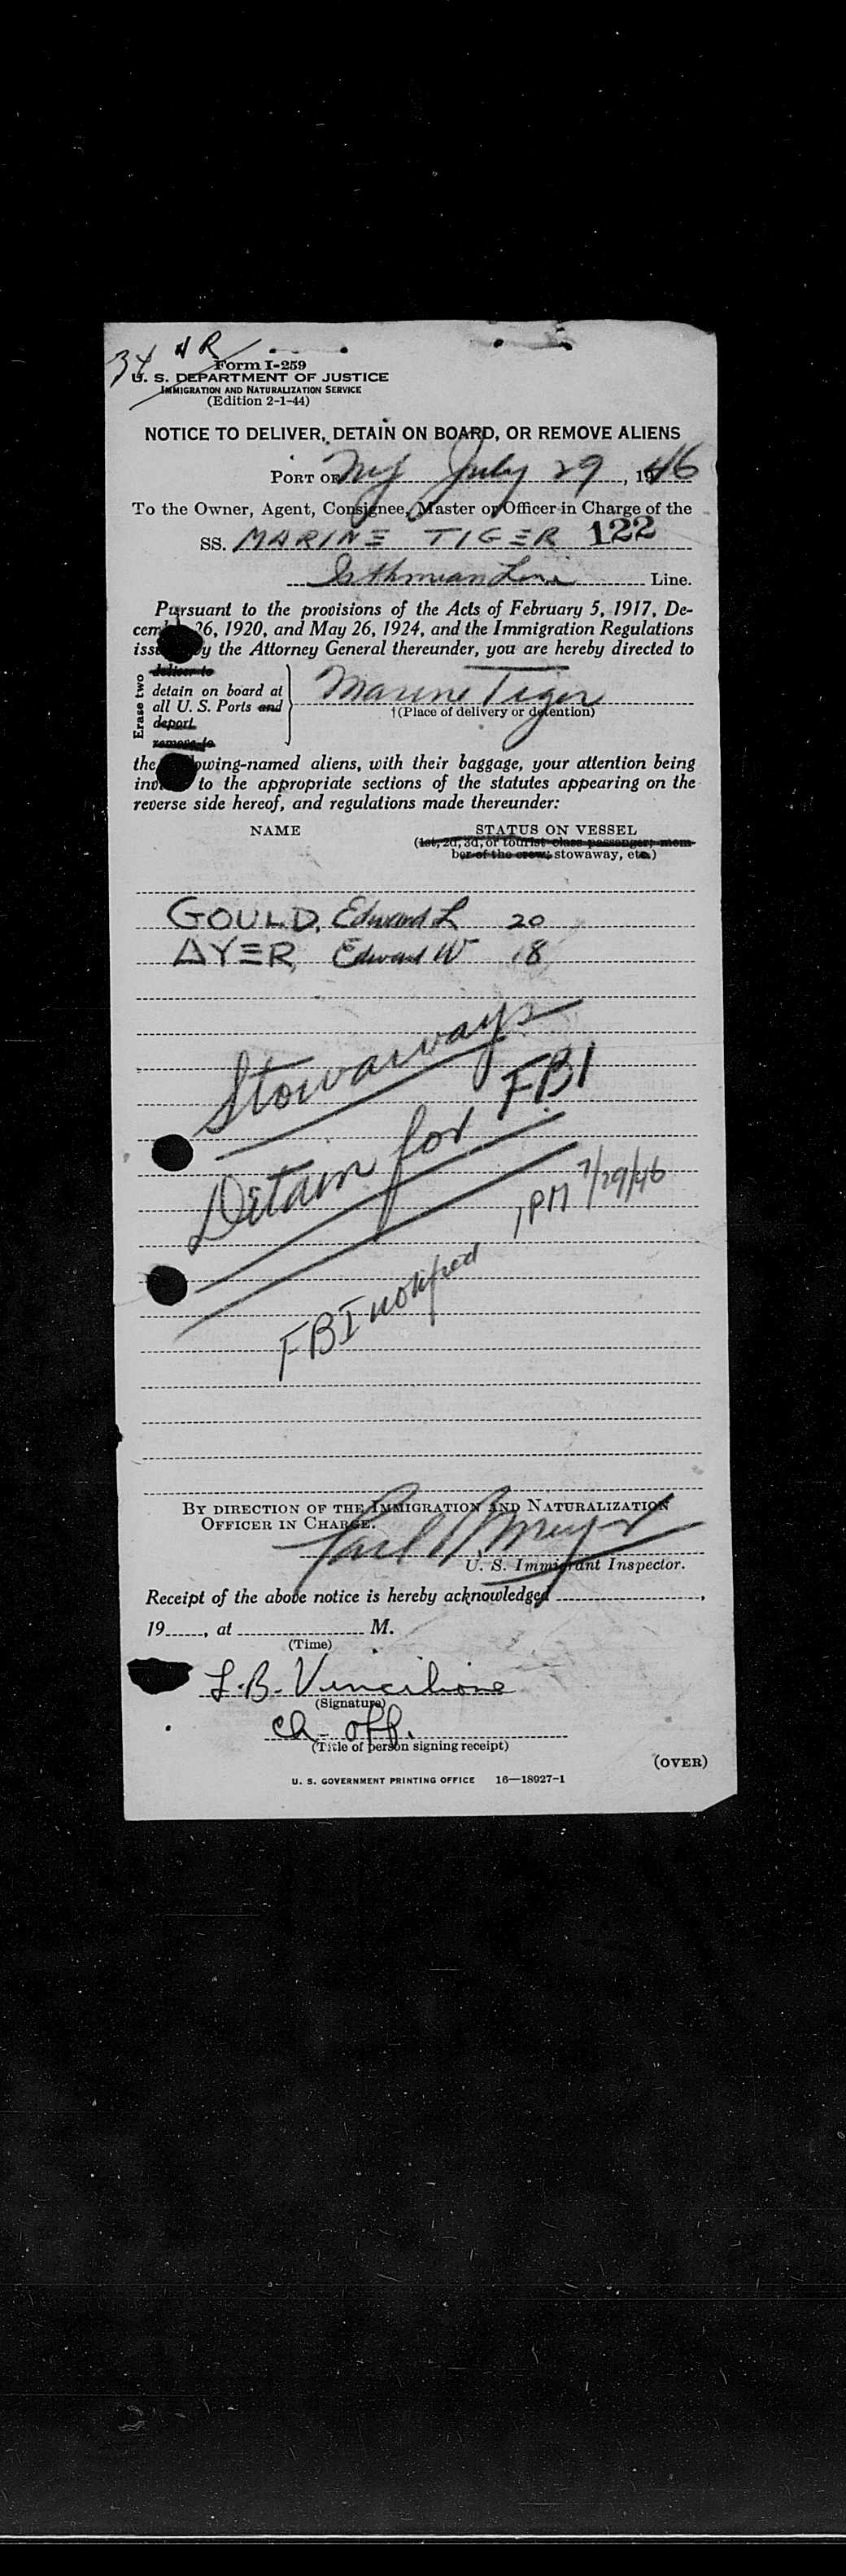 34 HR
Form I-259
U. S. DEPARTMENT OF JUSTICE
IMMIGRATION AND NATURALIZATION SERVICE
(Edition 2-1-44)
NOTICE TO DELIVER, DETAIN ON BOARD, OR REMOVE ALIENS
PORT OF NY July 29, 1946
To the Owner, Agent, Consignee, Master or Officer in Charge of the
SS. MARINE TIGER 122
Isthmian Line Line.
Pursuant to the provisions of the Acts of February 5, 1917, De-
cember 26, 1920, and May 26, 1924, and the Immigration Regulations
issued by the Attorney General thereunder, you are hereby directed to
Erase two
deliver to
detain on board at
all U. S. Ports and
deport
remove to
Marine Tiger
†(Place of delivery or detention)
the following-named aliens, with their baggage, your attention being
invited to the appropriate sections of the statutes appearing on the
reverse side hereof, and regulations made thereunder:
NAME STATUS ON VESSEL
(1st, 2d, 3d, or tourist class passenger; mem-
ber of the crew; stowaway, etc.)
GOULD, Edward L 20
AYER, Edward W 18
Stowaways
Detain for FBI
FBI notified 1 PM 7/29/46
BY DIRECTION OF THE IMMIGRATION AND NATURALIZATION
OFFICER IN CHARGE.
Carl Meyer
U. S. Immigrant Inspector.
Receipt of the above notice is hereby acknowledged ,
19 , at M.
(Time)
L. B. Vincilione
(Signature)
Ch. off.
(Title of person signing receipt)
(OVER)
U. S. GOVERNMENT PRINTING OFFICE 16—18927-1